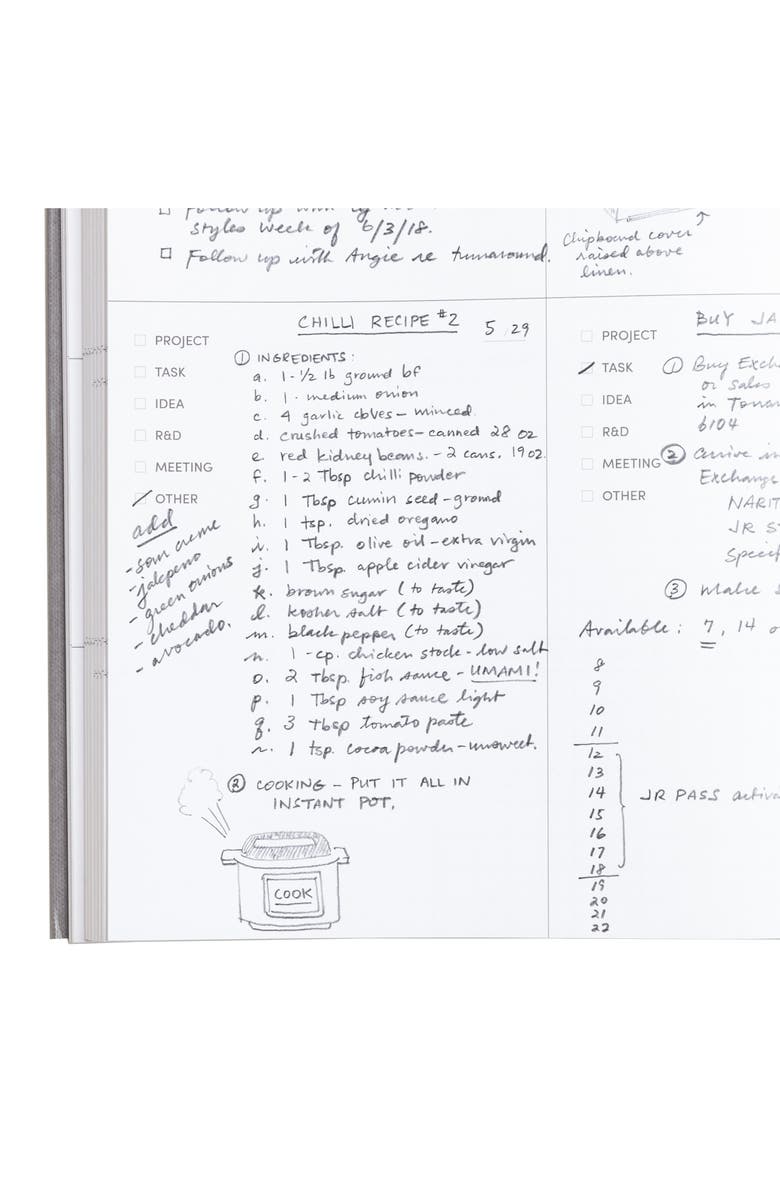 styles week of 6/3/18.
☐ Follow up with Angie re turnaround.
Chipboard cover
raised above
linen.
CHILLI RECIPE #2 5 29
PROJECT
TASK
IDEA
R&D
MEETING
OTHER
add
- sour creme
- jalepeno
- green onions
- cheddar
- avocado.
① INGREDIENTS:
a. 1-½ lb ground bf
b. 1 medium onion
c. 4 garlic cloves - minced
d. crushed tomatoes - canned 28 oz
e. red kidney beans. - 2 cans. 19oz.
f. 1-2 Tbsp chilli powder
g. 1 Tbsp cumin seed - ground
h. 1 tsp. dried oregano
i. 1 Tbsp. olive oil - extra virgin
j. 1 Tbsp. apple cider vinegar
k. brown sugar (to taste)
l. kosher salt (to taste)
m. black pepper (to taste)
n. 1 -cp. chicken stock - low salt
o. 2 Tbsp. fish sauce - UMAMI!
p. 1 Tbsp soy sauce light
q. 3 tbsp tomato paste
r. 1 tsp. cocoa powder - unsweet.
② COOKING - PUT IT ALL IN
INSTANT POT,
COOK
BUY JA
PROJECT
TASK
IDEA
R&D
MEETING
OTHER
① Buy Exch
or sales
in
6104
② arrive in
Exchange
NARIT
JR S
specif
③ make
Available: 7, 14 o
8
9
10
11
12
13
14
15
16
17
18
19
20
21
22
JR PASS activa